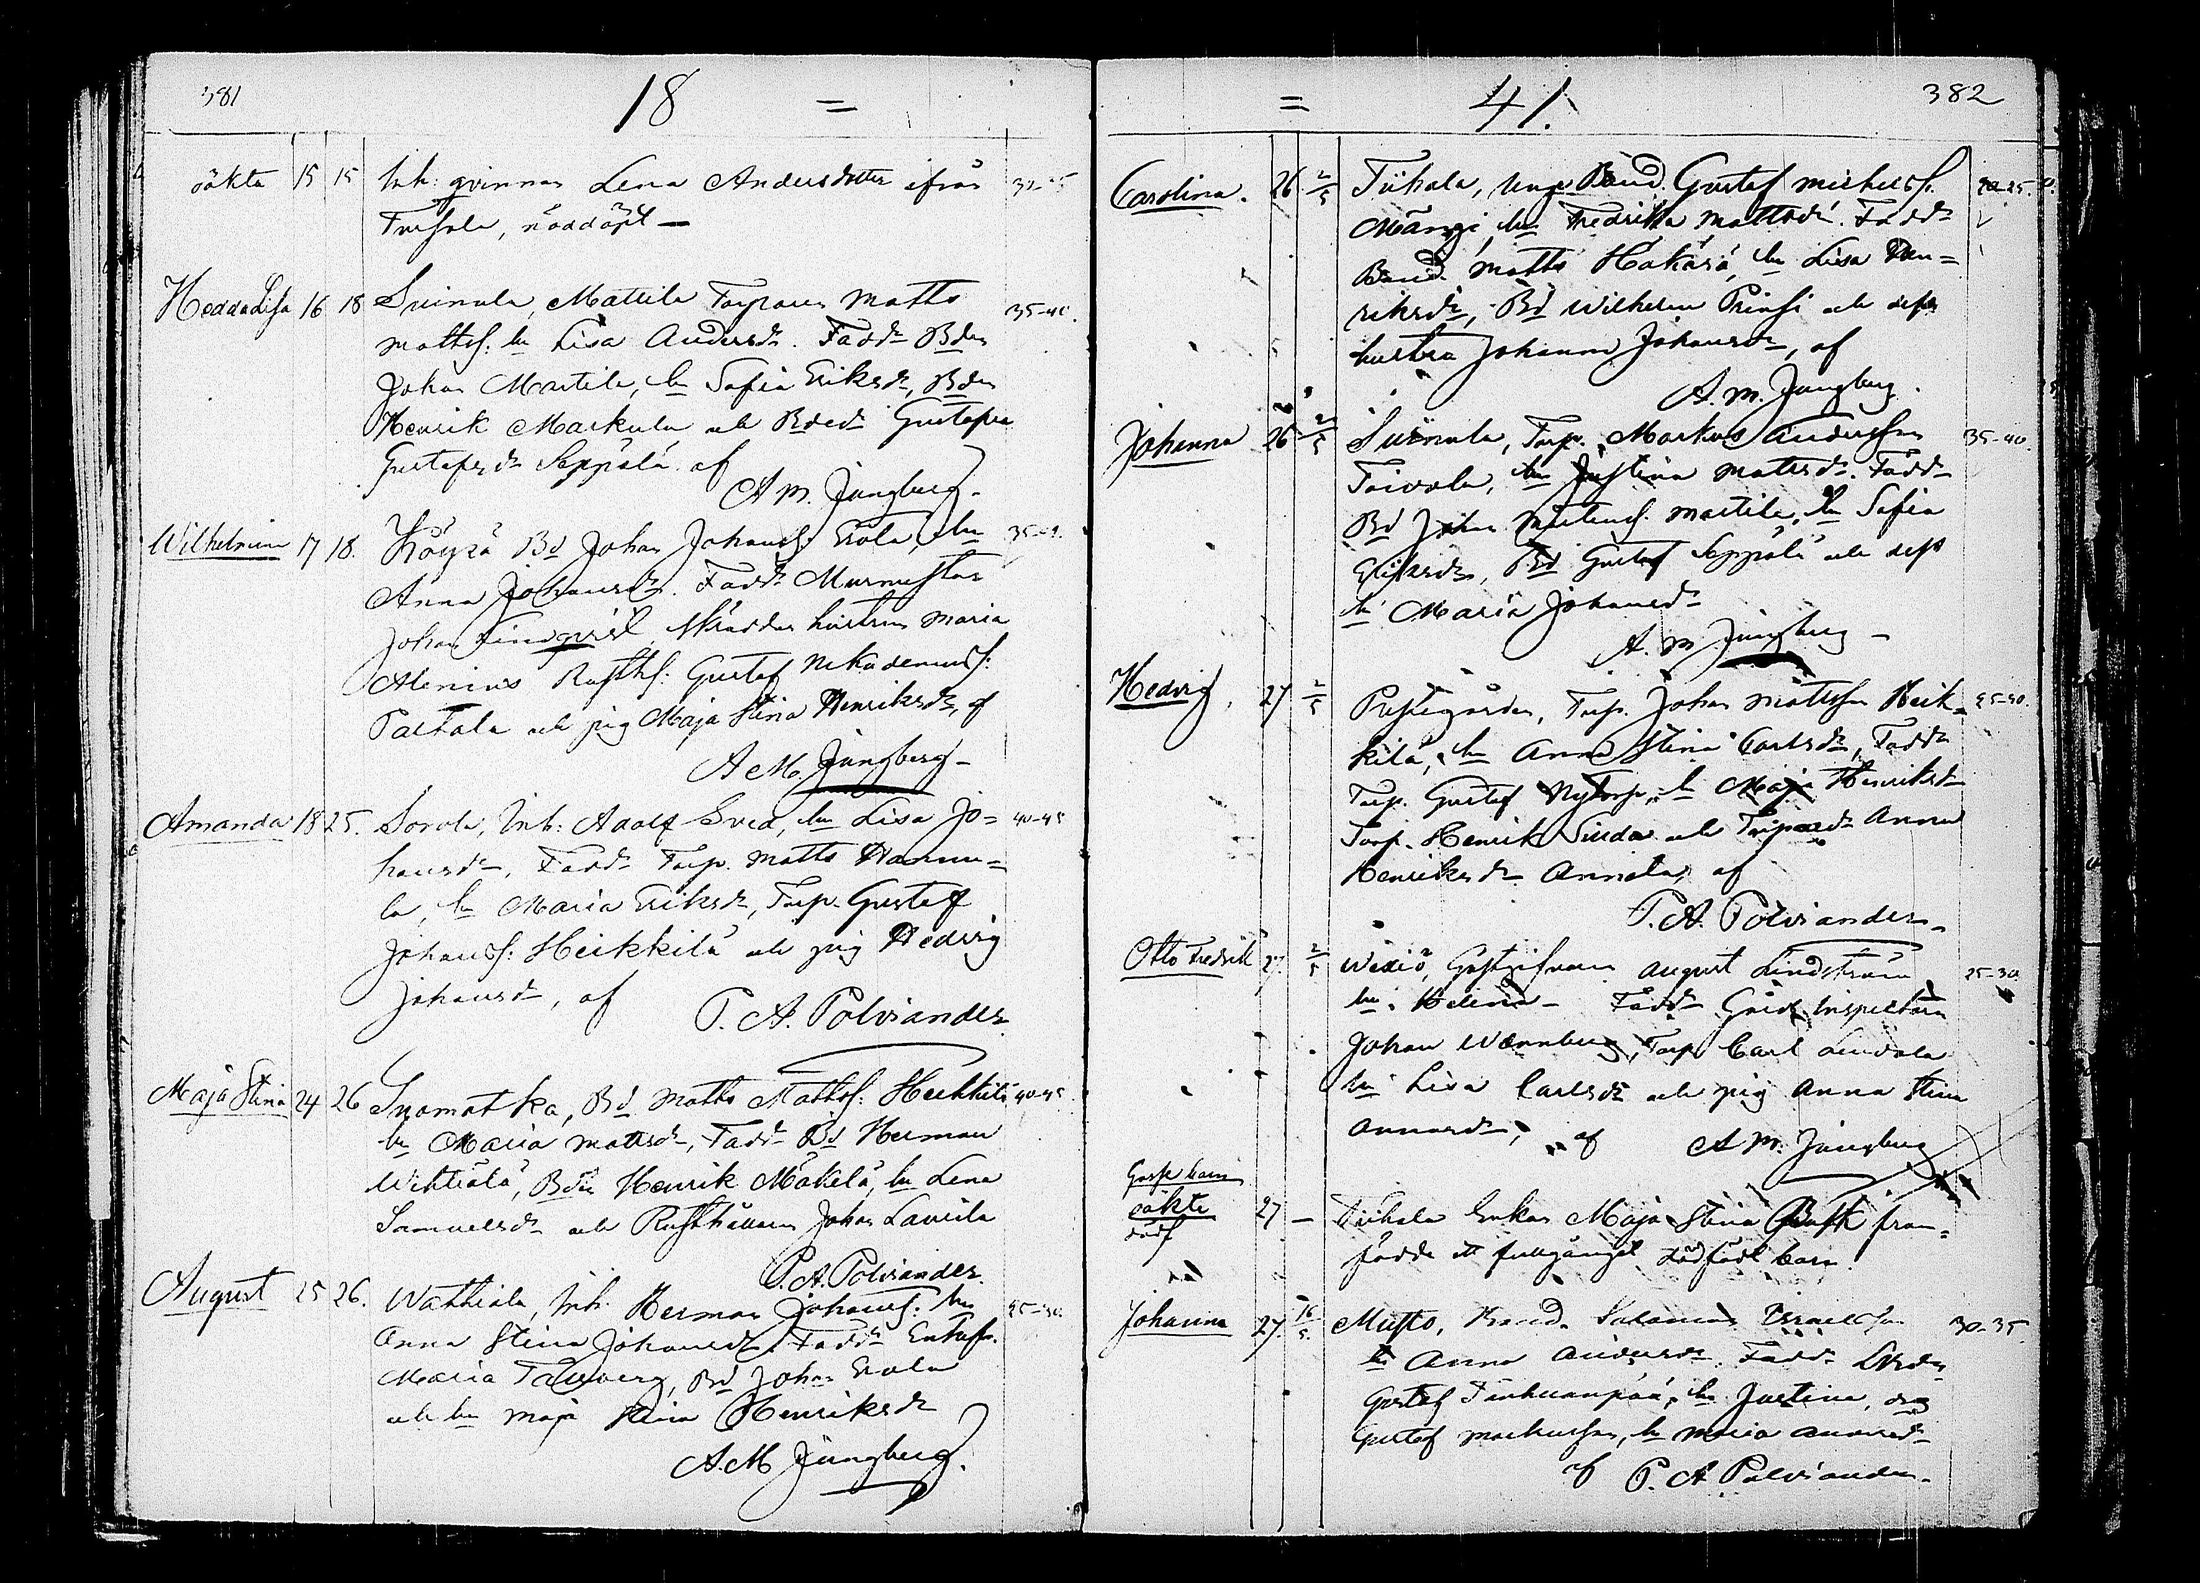 381
18 =
oäkta 15 15 Inh: qvinnan Lena Andersdotter ifrån
nöddöpt —
Hedda Lisa 16 18 Suinula, Mattila Torparen Matts 35-40.
Mattss: hu Lisa Andersdr. Faddr Bden
Johan Martila, hu Sofia Eriksdr, Bden
Henrik Markula och Bdedr Gustafva
Gustafsdr Seppälä af
A M. Jungberg.
Wilhelmina 17 18. Köyrä Bd Johan Johanss: Erola, hu
Anna Johansdr. Faddr Murmästar
Johan Lindqvist, Skräddar hustrun Maria
Alenius Rusth: Gustaf Nikodemuss:
Paltala och pig Maja Stina Henriksdr, af
A M. Jungberg —
Amanda 18 25. Sorola, Inh: Adolf Sved, hu Lisa Jo= 40-45
hansdr, Faddr Torp. Matts Hannu=
la, hu Maria Eriksdr, Torp. Gustaf
Johanss: Heikkilä och pig Hedvig
Johansdr, af
P. A. Polviander
Maja Stina 24 26 Suomatka, Bd Matts Mattss: Heikkilä 40-45
hu Maria Mattsdr, Faddr Bd Herman
Wihtiälä, Bden Henrik Mäkelä, hu Lena
Samuelsdr och Rusthållaren Johan Laurila
P. A. Polviander.
August 25 26. Wahhiala, Inh: Herman Johanss: hu 25-30.
Anna Stina Johansdr. Faddr
Maria Tallberg, Bd Johan Erola
och hu Maja Stina Henriksdr
A. M Jungberg.
= 41. 382
Carolina. 26 2/5 Tiihala, Unge Bond. Gustaf Michelss:
hu Fredrika Mattsdr. Faddr
Bond. Matts Hakärä, hu Lisa Hen=
riksdr, Bd Wilhelm Prinsi och dess
hustru Johanna Johansdr, af
A. M. Jungberg.
Johanna 26 2/5 Suinula, Torp. Markus Andersson 35-40.
Toivola, hu Justina Mattsdr. Faddr
Bd Johan Mårtenss. Martila, hu Sofia
Eriksdr, Bd Gustaf Seppälä och dess
hu Maria Johansdr
A. M Jungberg —
Hedvig, 27 2/5 Prestgården, Torp. Johan Mattsson Heik=
kilä, hu Anna Stina Carlsdr, Faddr
Torp. Gustaf Nytorp, hu Maja Henriksdr
Torp. Henrik Sinda och Torparedr Anna
Henriksdr Annila, af
P. A. Polviander —
Otto Fredrik 27. 2/5 Wexiö, Gästgifvaren August Lindström 25-30
hu Helena — Faddr Gårds Inspektorn
Johan Wannberg, Torp Carl
hu Lisa Carlsdr och pig Anna Stina
Annasdr, af A M. Jungberg
Gosse barn
oäkta 27 — Tiihala Enkan Maja Stina Bask fram=
dödf födde ett fullgånget dödfödt barn
Johanna 27. 16/5. Musto, Bond. Salomon Israelsson 30-35.
hu Anna Andersdr. Faddr
Gustaf hu Justina, dräg
Gustaf Markusson, hu Maria
af P. A Polviander.